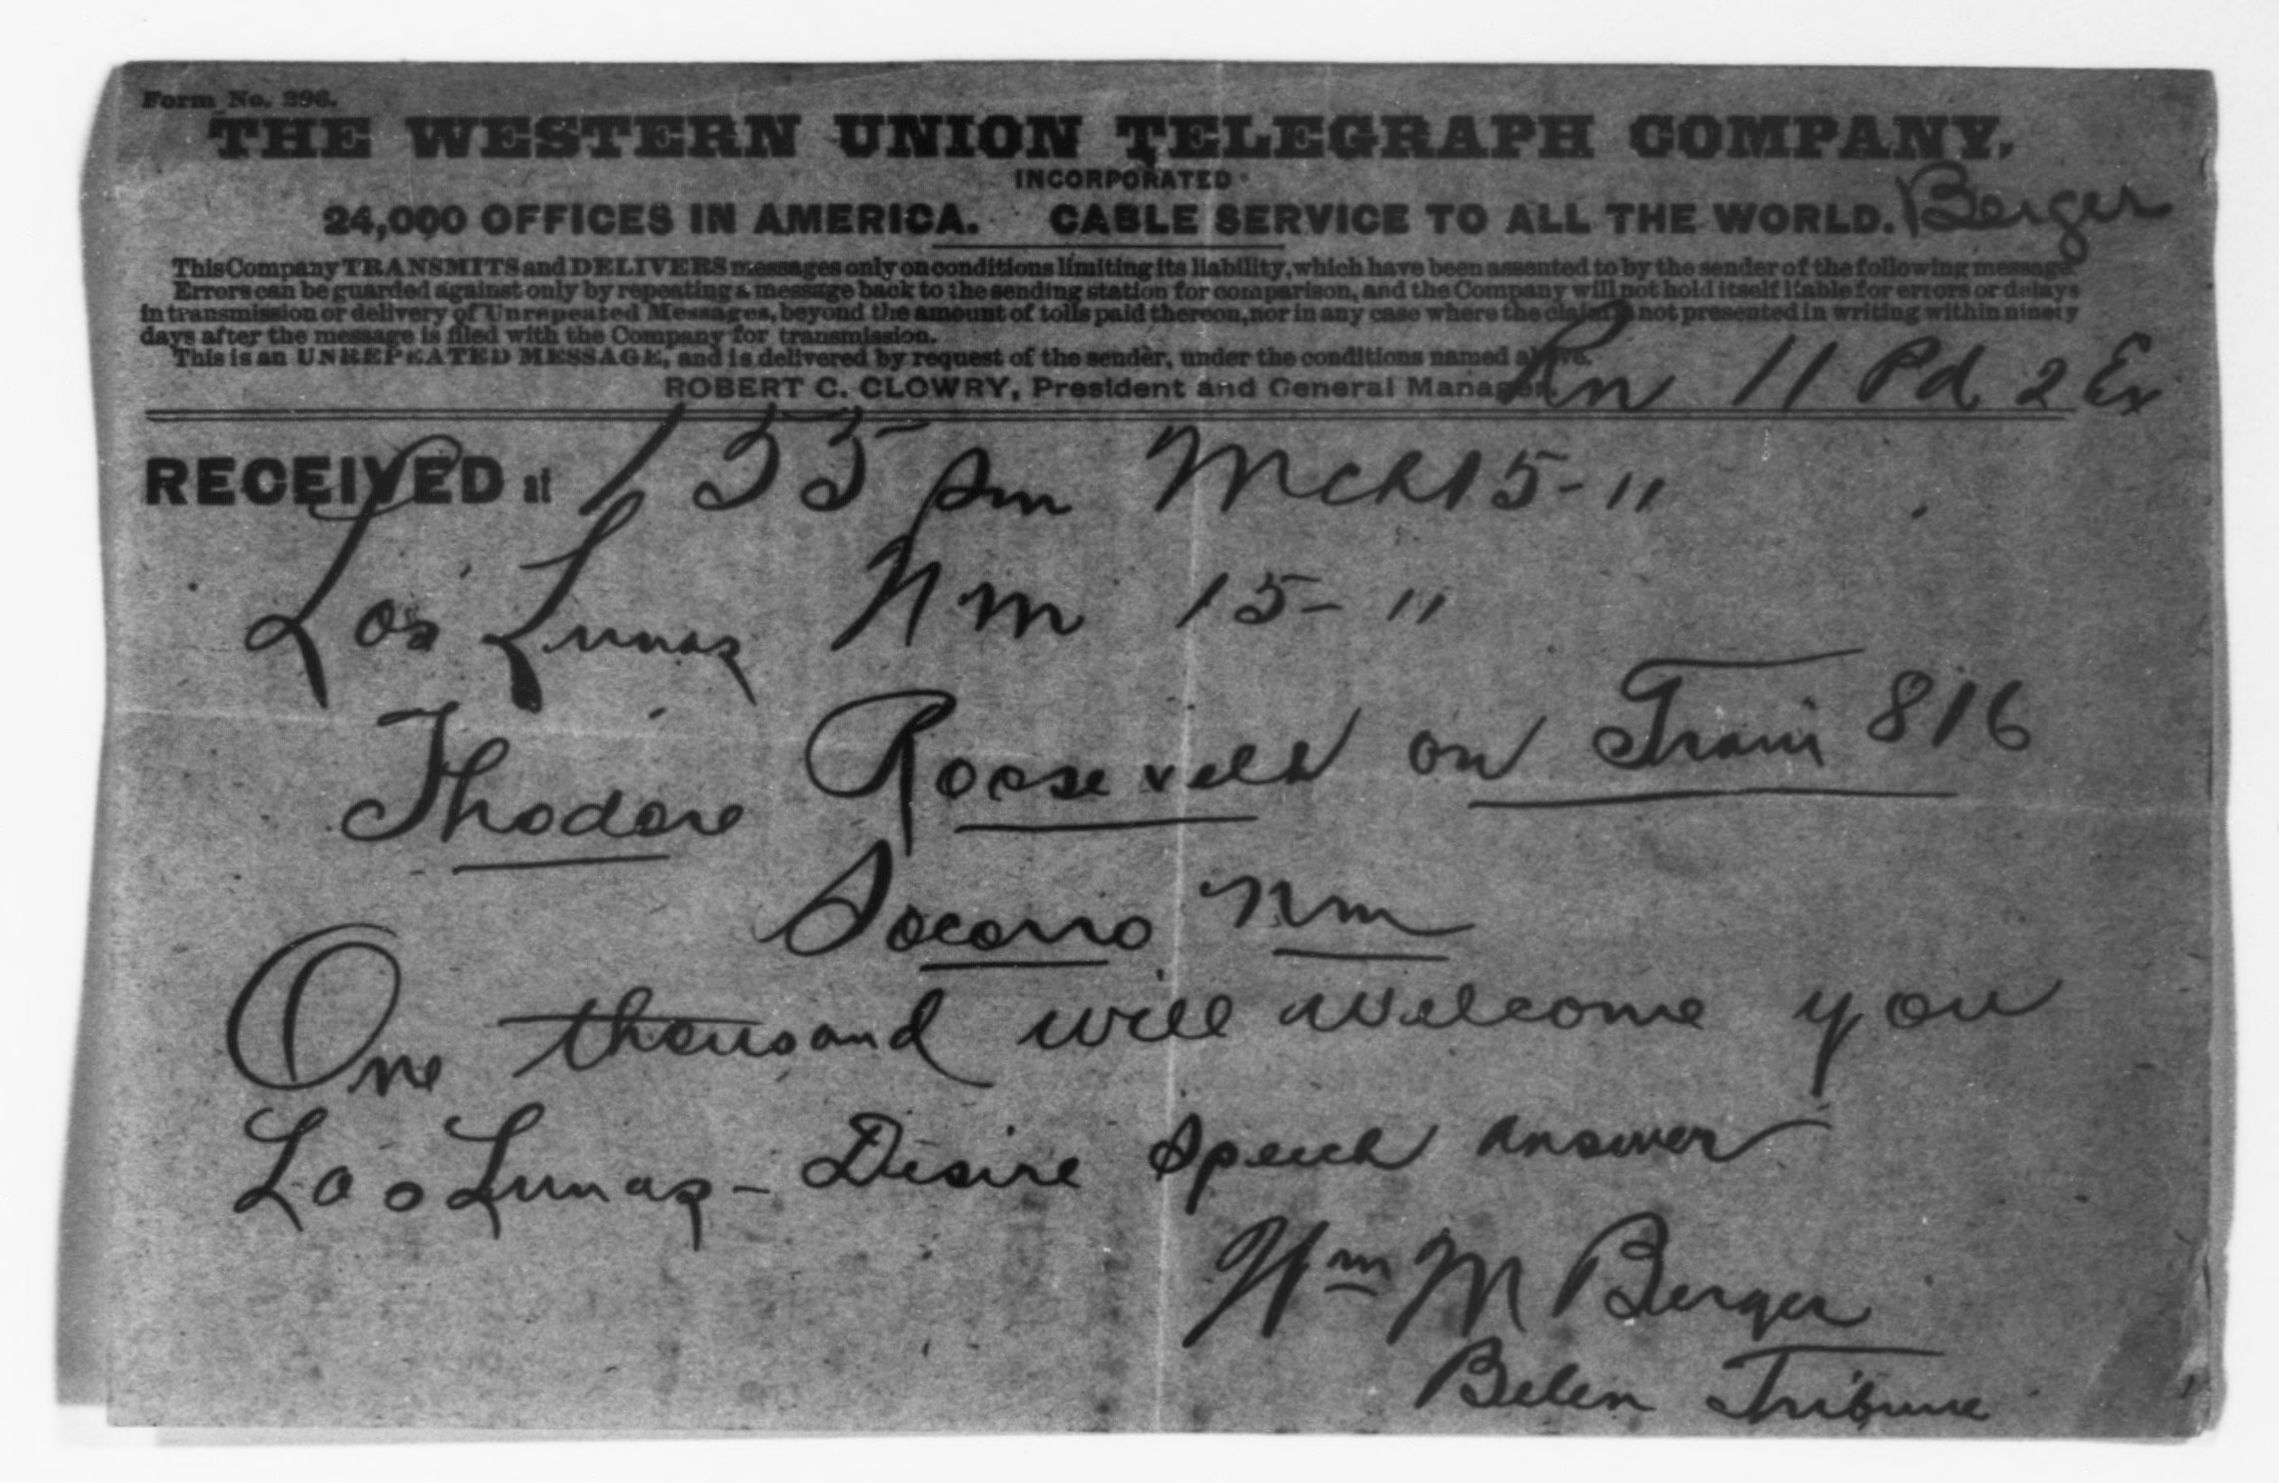 Form No. 296.
THE WESTERN UNION TELEGRAPH COMPANY.
INCORPORATED
24,000 OFFICES IN AMERICA. CABLE SERVICE TO ALL THE WORLD. Berger
This Company TRANSMITS and DELIVERS messages only on conditions limiting its liability, which have been assented to by the sender of the following message.
Errors can be guarded against only by repeating a message back to the sending station for comparison, and the Company will not hold itself liable for errors or delays
in transmission or delivery of Unrepeated Messages, beyond the amount of tolls paid thereon, nor in any case where the claim is not presented in writing within ninety
days after the message is filed with the Company for transmission.
This is an UNREPEATED MESSAGE, and is delivered by request of the sender, under the conditions named above.
ROBERT C. CLOWRY, President and General Manager.
Rn 11 Pd 2 Ex
RECEIVED at 155 pm Mch 15 - 11
Los Lunas Nm 15 - 11
Thodore Roosevelt on Train 816
Socorro Nm
One thousand will welcome you
Los Lunas - Desire Speech answer
Wm M Berger
Belen Tribune